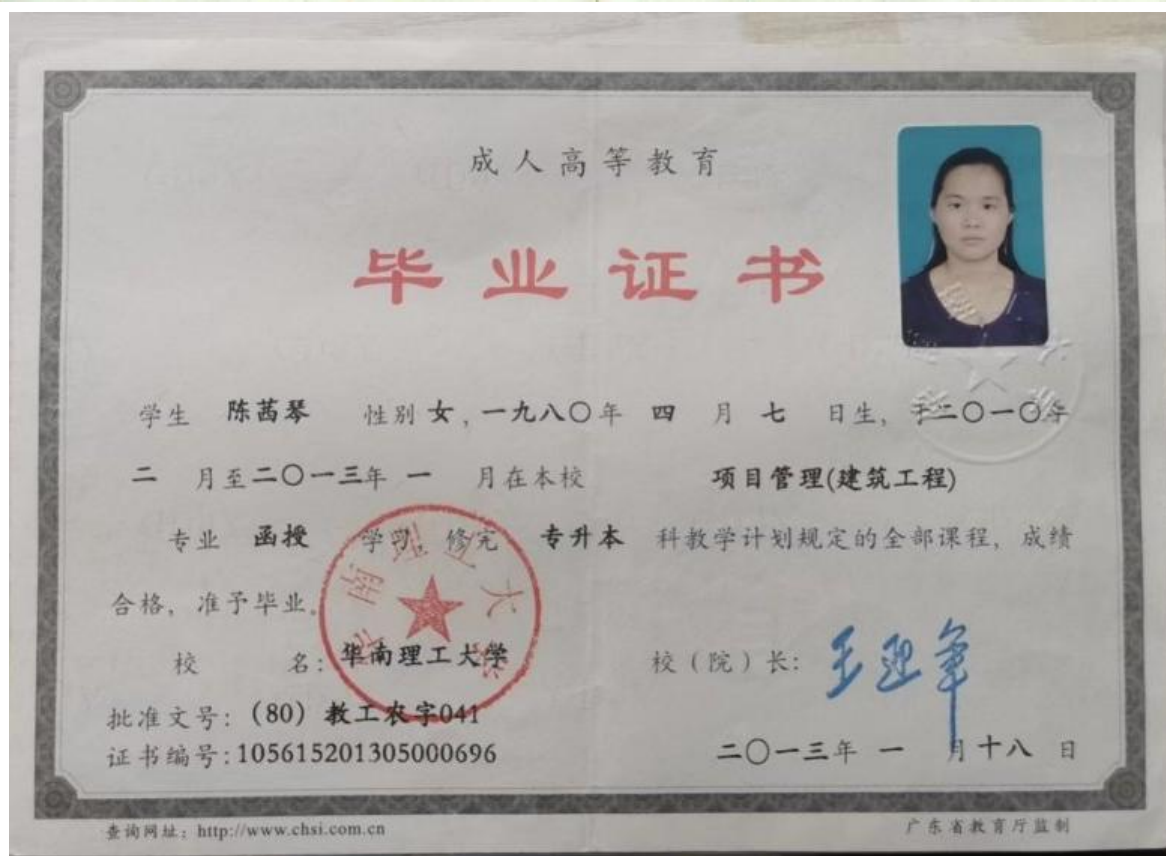 成人高等教育
毕业证书
学生 陈茜琴 性别 女，一九八〇年 四 月 七 日生，于二〇一〇年
二 月至二〇一三年 一 月在本校 项目管理(建筑工程)
专业 函授 学习 修完 专升本 科教学计划规定的全部课程，成绩
合格，准予毕业。
华南理工大学
校 名：华南理工大学 校（院）长：王迎军
批准文号：(80) 教工农字041
证书编号：105615201305000696 二〇一三年 一 月十八 日
查询网址：http://www.chsi.com.cn 广东省教育厅监制